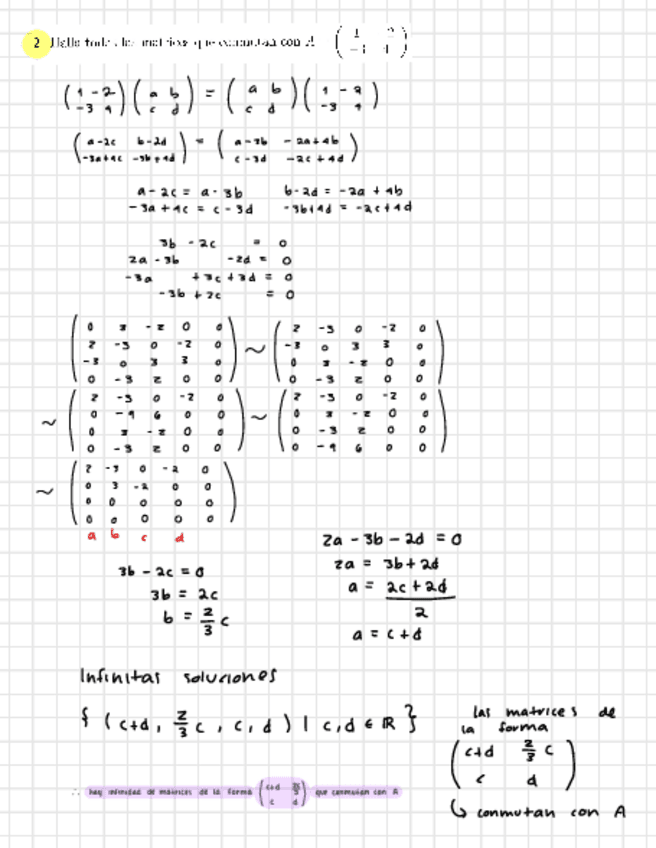 2 Halla todas las matrices que conmutan con A ( 1 -2 / -3 4 )
( 1 -2 / -3 4 ) ( a b / c d ) = ( a b / c d ) ( 1 -2 / -3 4 )
( a-2c b-2d / -3a+4c -3b+4d ) = ( a-3b -2a+4b / c-3d -2c+4d )
a-2c = a-3b b-2d = -2a+4b
-3a+4c = c-3d -3b+4d = -2c+4d
3b -2c = 0
2a -3b -2d = 0
-3a +3c +3d = 0
-3b +2c = 0
( 0 3 -2 0 0 ) ~ ( 2 -3 0 -2 0 )
( 2 -3 0 -2 0 ) ( -3 0 3 3 0 )
( -3 0 3 3 0 ) ( 0 3 -2 0 0 )
( 0 -3 2 0 0 ) ( 0 -3 2 0 0 )
~ ( 2 -3 0 -2 0 ) ~ ( 2 -3 0 -2 0 )
( 0 -9 6 0 0 ) ( 0 3 -2 0 0 )
( 0 3 -2 0 0 ) ( 0 -3 2 0 0 )
( 0 -3 2 0 0 ) ( 0 -9 6 0 0 )
~ ( 2 -3 0 -2 0 )
( 0 3 -2 0 0 )
( 0 0 0 0 0 )
( 0 0 0 0 0 )
a b c d
3b - 2c = 0
3b = 2c
b = 2/3 c
2a - 3b - 2d = 0
2a = 3b + 2d
a = 2c + 2d / 2
a = c + d
Infinitas soluciones
{ ( c+d , 2/3 c , c , d ) | c,d ∈ ℝ }
las matrices de
la forma
( c+d 2/3 c )
( c d )
↳ conmutan con A
∴ hay infinidad de matrices de la forma ( c+d / c d ) que conmutan con A